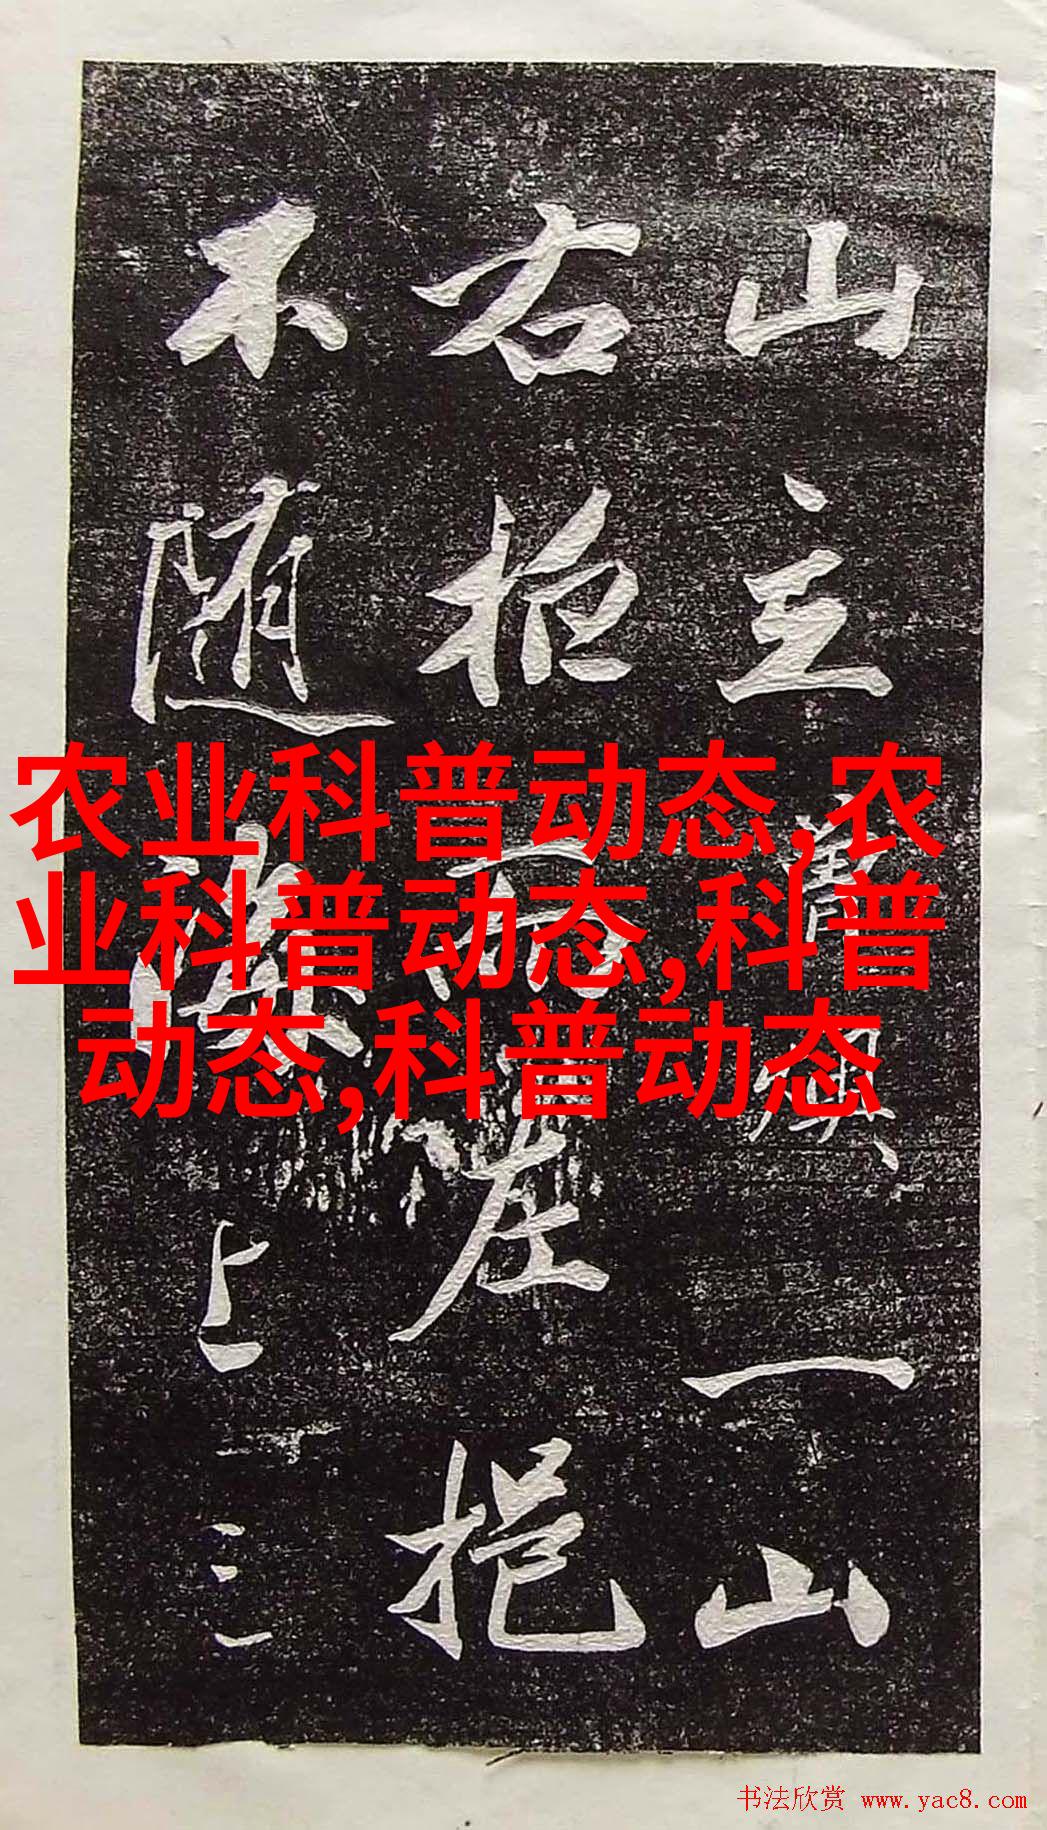 山主 一山
右柜而左挹
不随 上三
农业科普动态,农
业科普动态,科普
动态,科普动态
书法欣赏 www.yac8.com